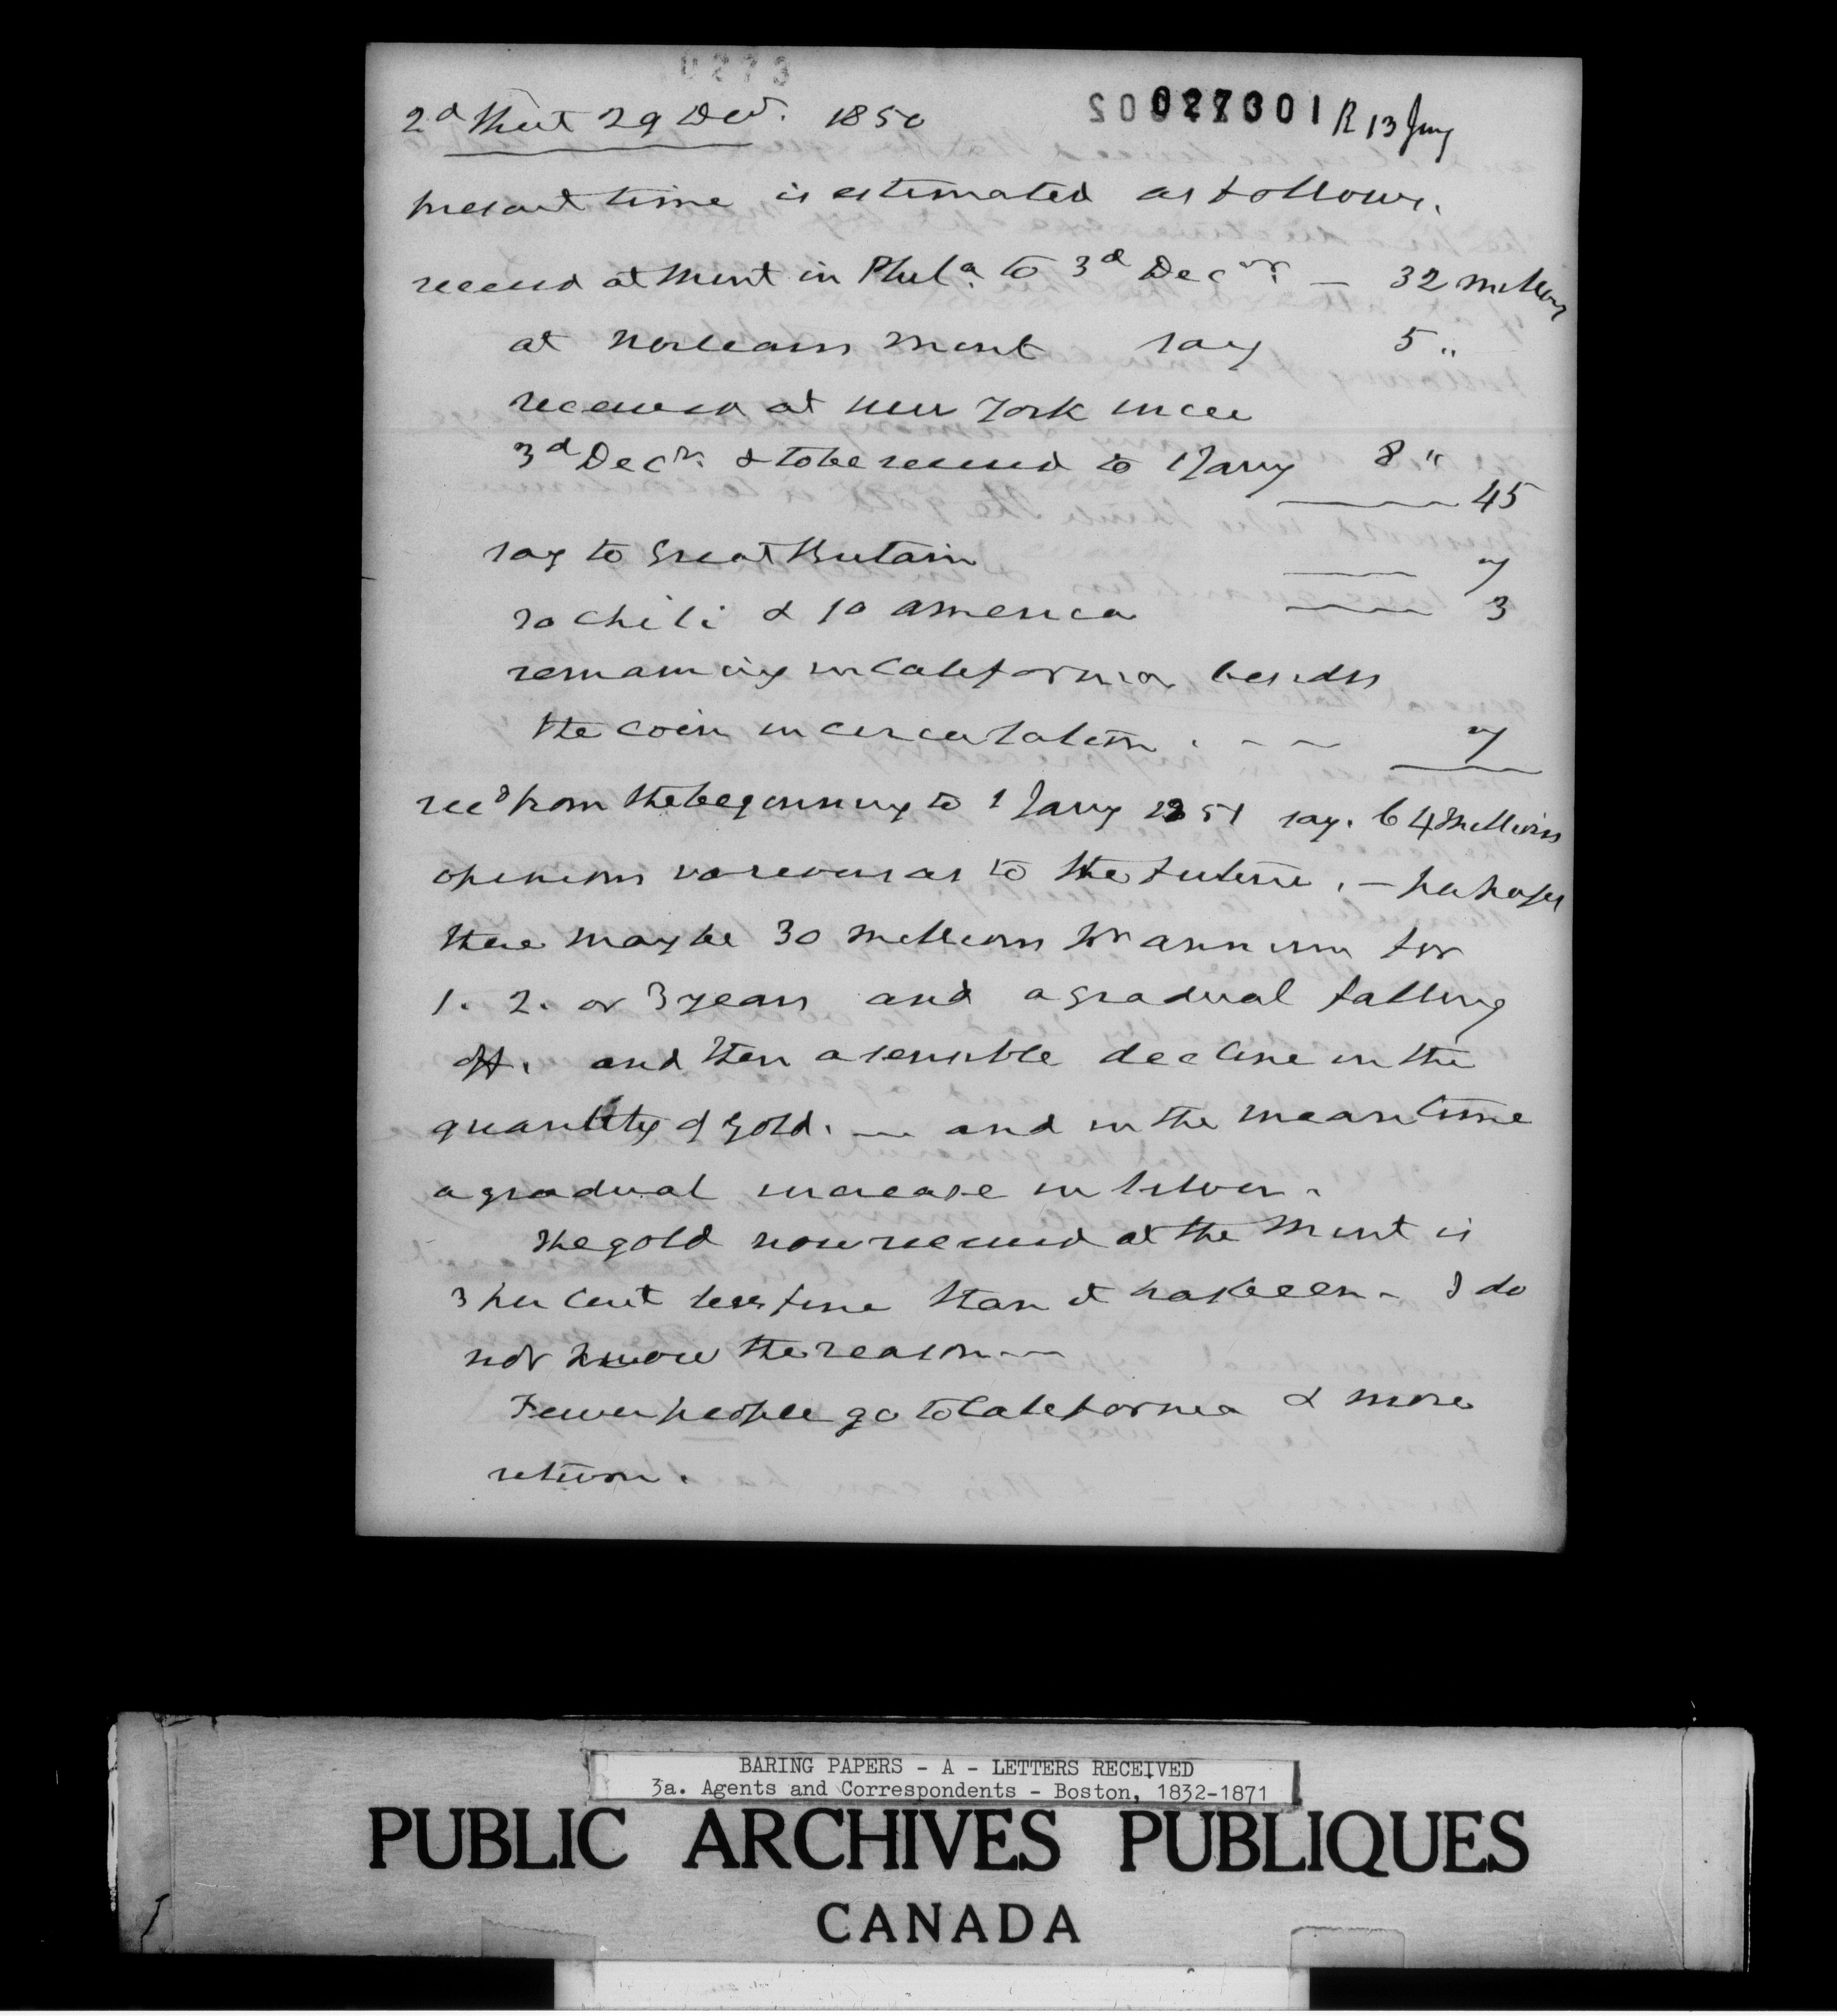 0273
2d Sheet 29 Decr. 1850
027301 R 13 Jany
present time is estimated as follows.
received at Mint in Phila. to 3d Decr. — 32 millions
at Norleans Mint say 5 "
received at New York since
3d Decr. & to be received to 1 Jany 8 "
45
say to Great Britain — 7
so Chili & So America — 3
remaining in California besides
the coin in circulation . - - 7
recd from the beginning to 1 Jany 1851 say. 64 Millions
opinions various as to the future, — perhaps
there may be 30 millions pr annum for
1. 2. or 3 years and a gradual falling
off. and then a sensible decline in the
quantity of gold. — and in the meantime
a gradual increase in silver.
The gold now received at the Mint is
3 per cent less fine than it has been - I do
not know the reason —
Fewer people go to California & more
return.
BARING PAPERS - A - LETTERS RECEIVED
3a. Agents and Correspondents - Boston, 1832-1871
PUBLIC ARCHIVES PUBLIQUES
CANADA